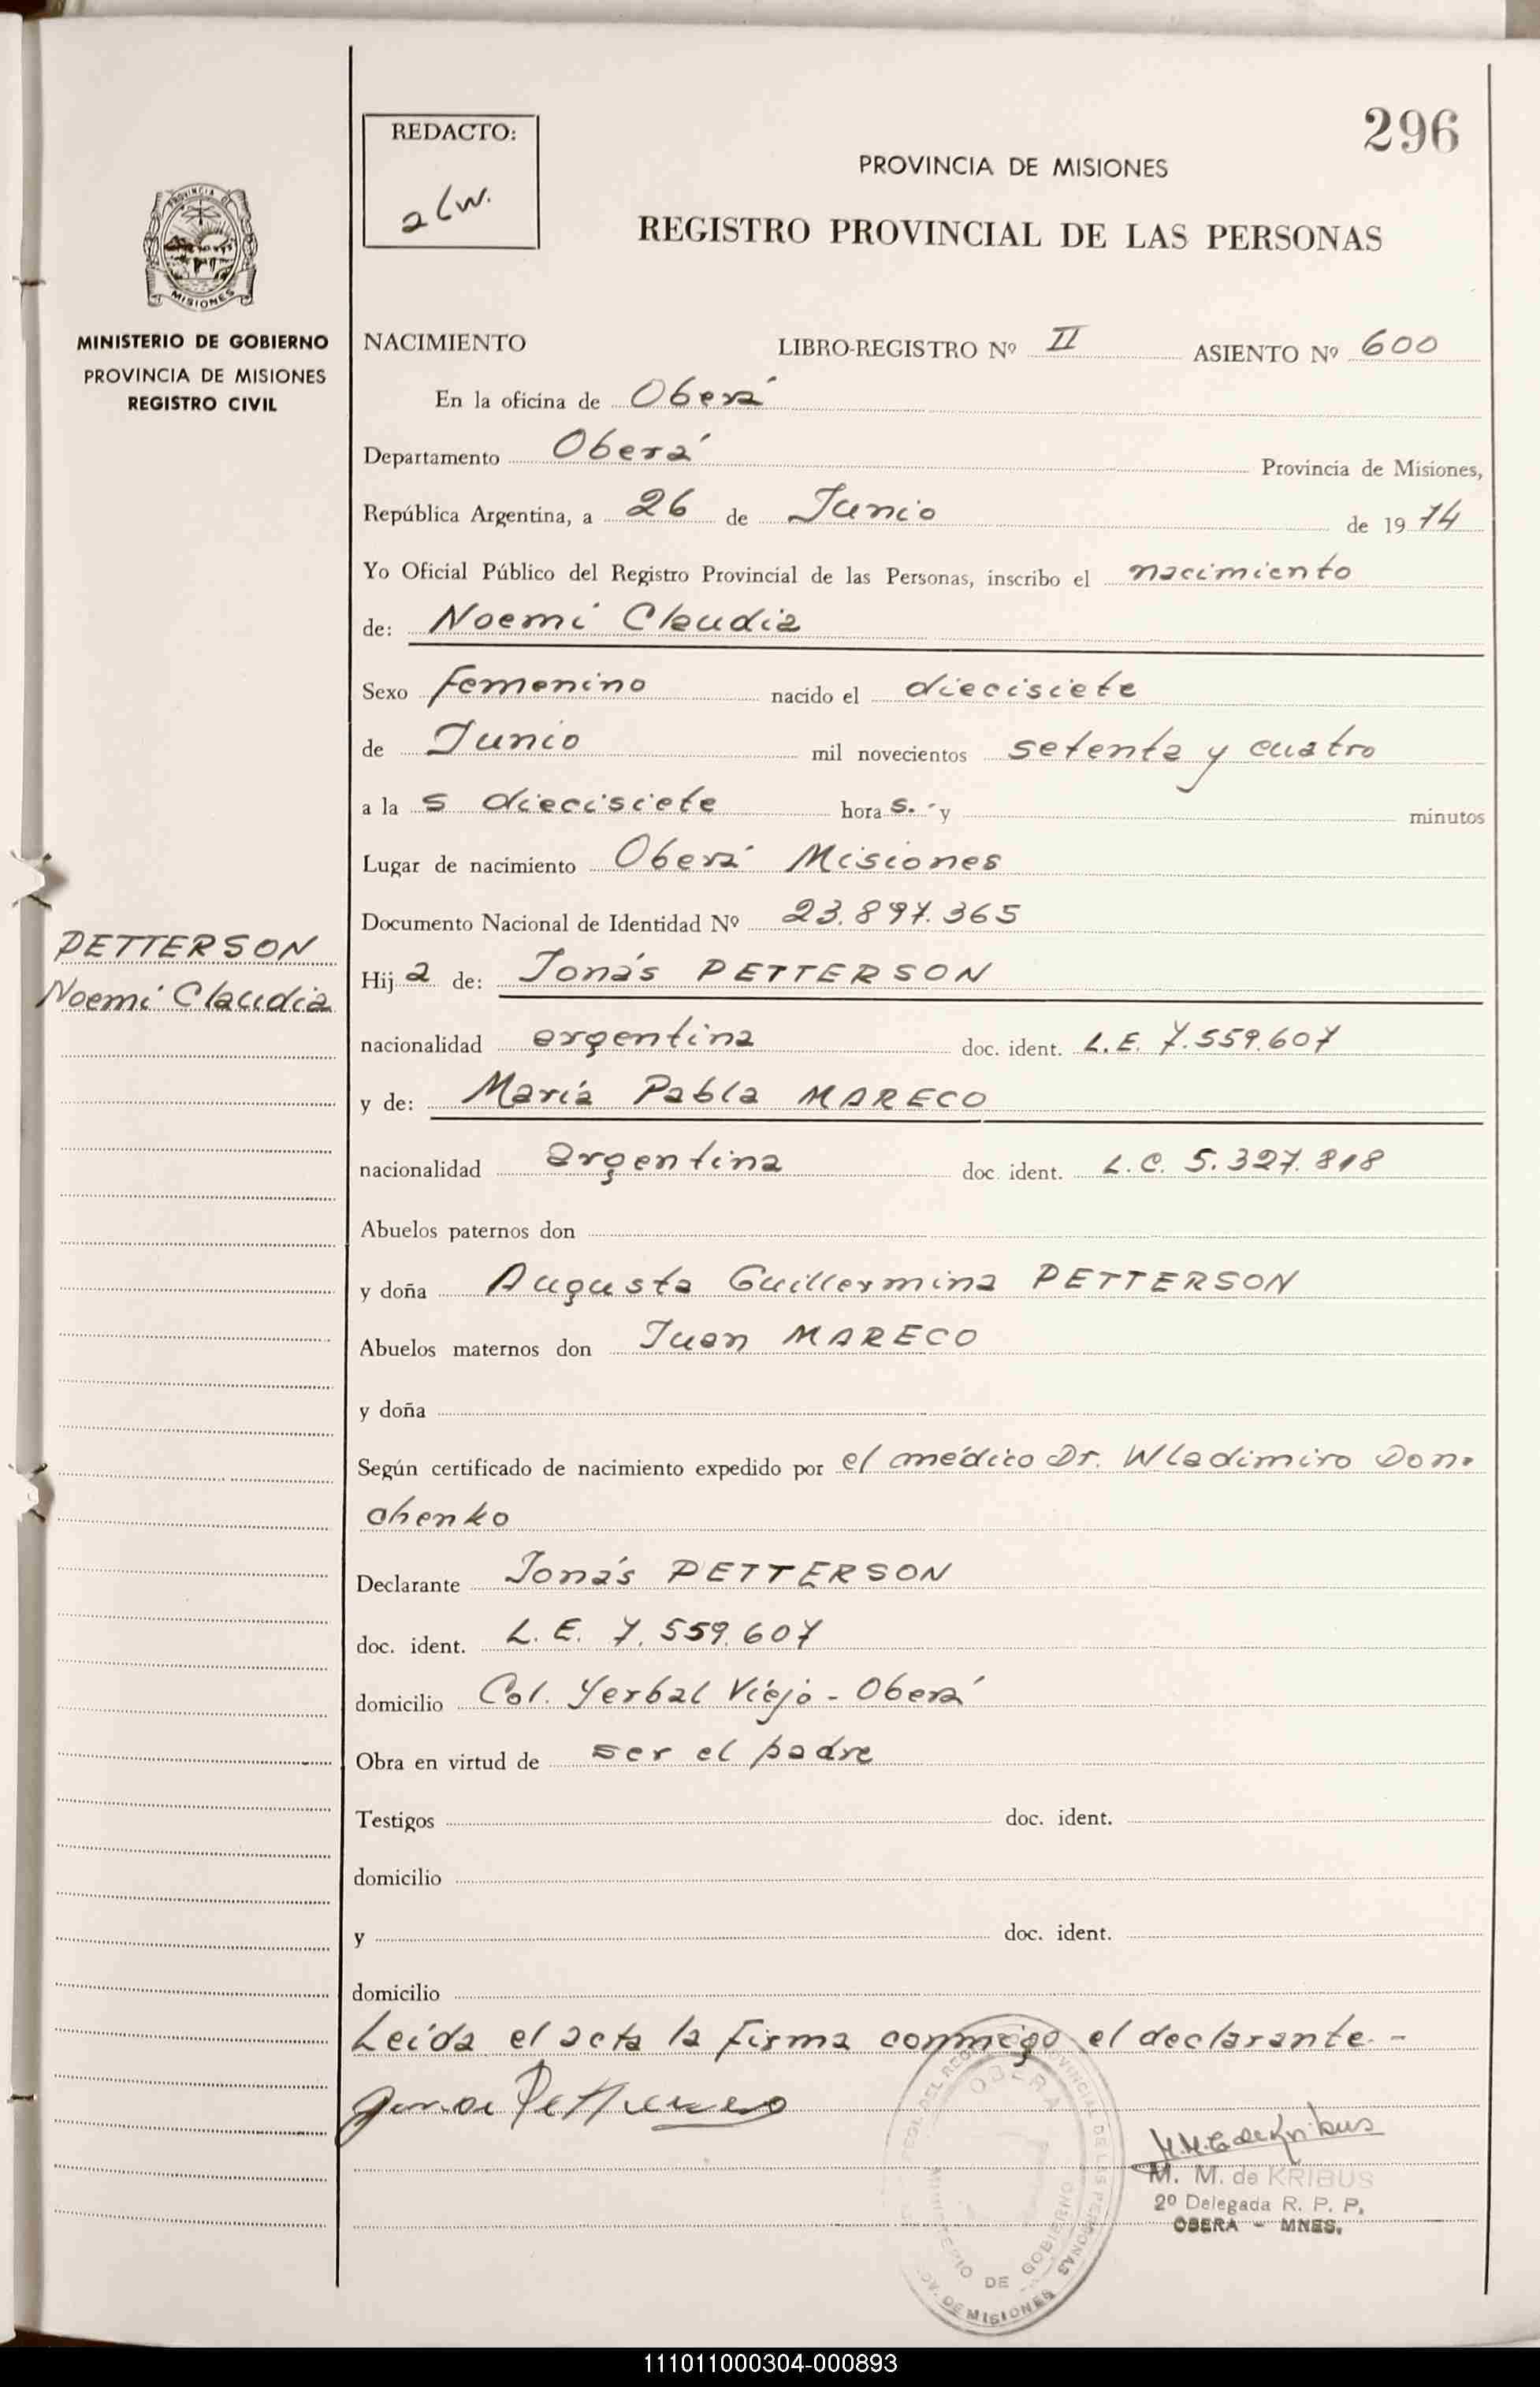 296
REDACTO:
alw.
PROVINCIA DE MISIONES
REGISTRO PROVINCIAL DE LAS PERSONAS
PROVINCIA
MISIONES
MINISTERIO DE GOBIERNO
PROVINCIA DE MISIONES
REGISTRO CIVIL
NACIMIENTO LIBRO-REGISTRO Nº II ASIENTO Nº 600
En la oficina de Oberá
Departamento Oberá Provincia de Misiones,
República Argentina, a 26 de Junio de 1974
Yo Oficial Público del Registro Provincial de las Personas, inscribo el nacimiento
de: Noemí Claudia
Sexo femenino nacido el diecisiete
de Junio mil novecientos setenta y cuatro
a la s diecisiete hora s. y minutos
Lugar de nacimiento Oberá Misiones
Documento Nacional de Identidad Nº 23.897.365
PETTERSON
Noemí Claudia
Hij a de: Jonás PETTERSON
nacionalidad argentina doc. ident. L.E. 7.559.607
y de: María Pabla MARECO
nacionalidad argentina doc. ident. L.C. 5.327.818
Abuelos paternos don
y doña Augusta Guillermina PETTERSON
Abuelos maternos don Juan MARECO
y doña
Según certificado de nacimiento expedido por el médico Dr. Wladimiro Don-
chenko
Declarante Jonás PETTERSON
doc. ident. L.E. 7.559.607
domicilio Col. Yerbal Viejo - Oberá
Obra en virtud de ser el padre
Testigos doc. ident.
domicilio
y doc. ident.
domicilio
Leída el acta la firma conmigo el declarante.-
OBERA
MINISTERIO DE GOBIERNO
PROVINCIAL DE LAS PERSONAS
DE MISIONES
M. M. de KRIBUS
2º Delegada R. P. P.
OBERA - MNES.
111011000304-000893